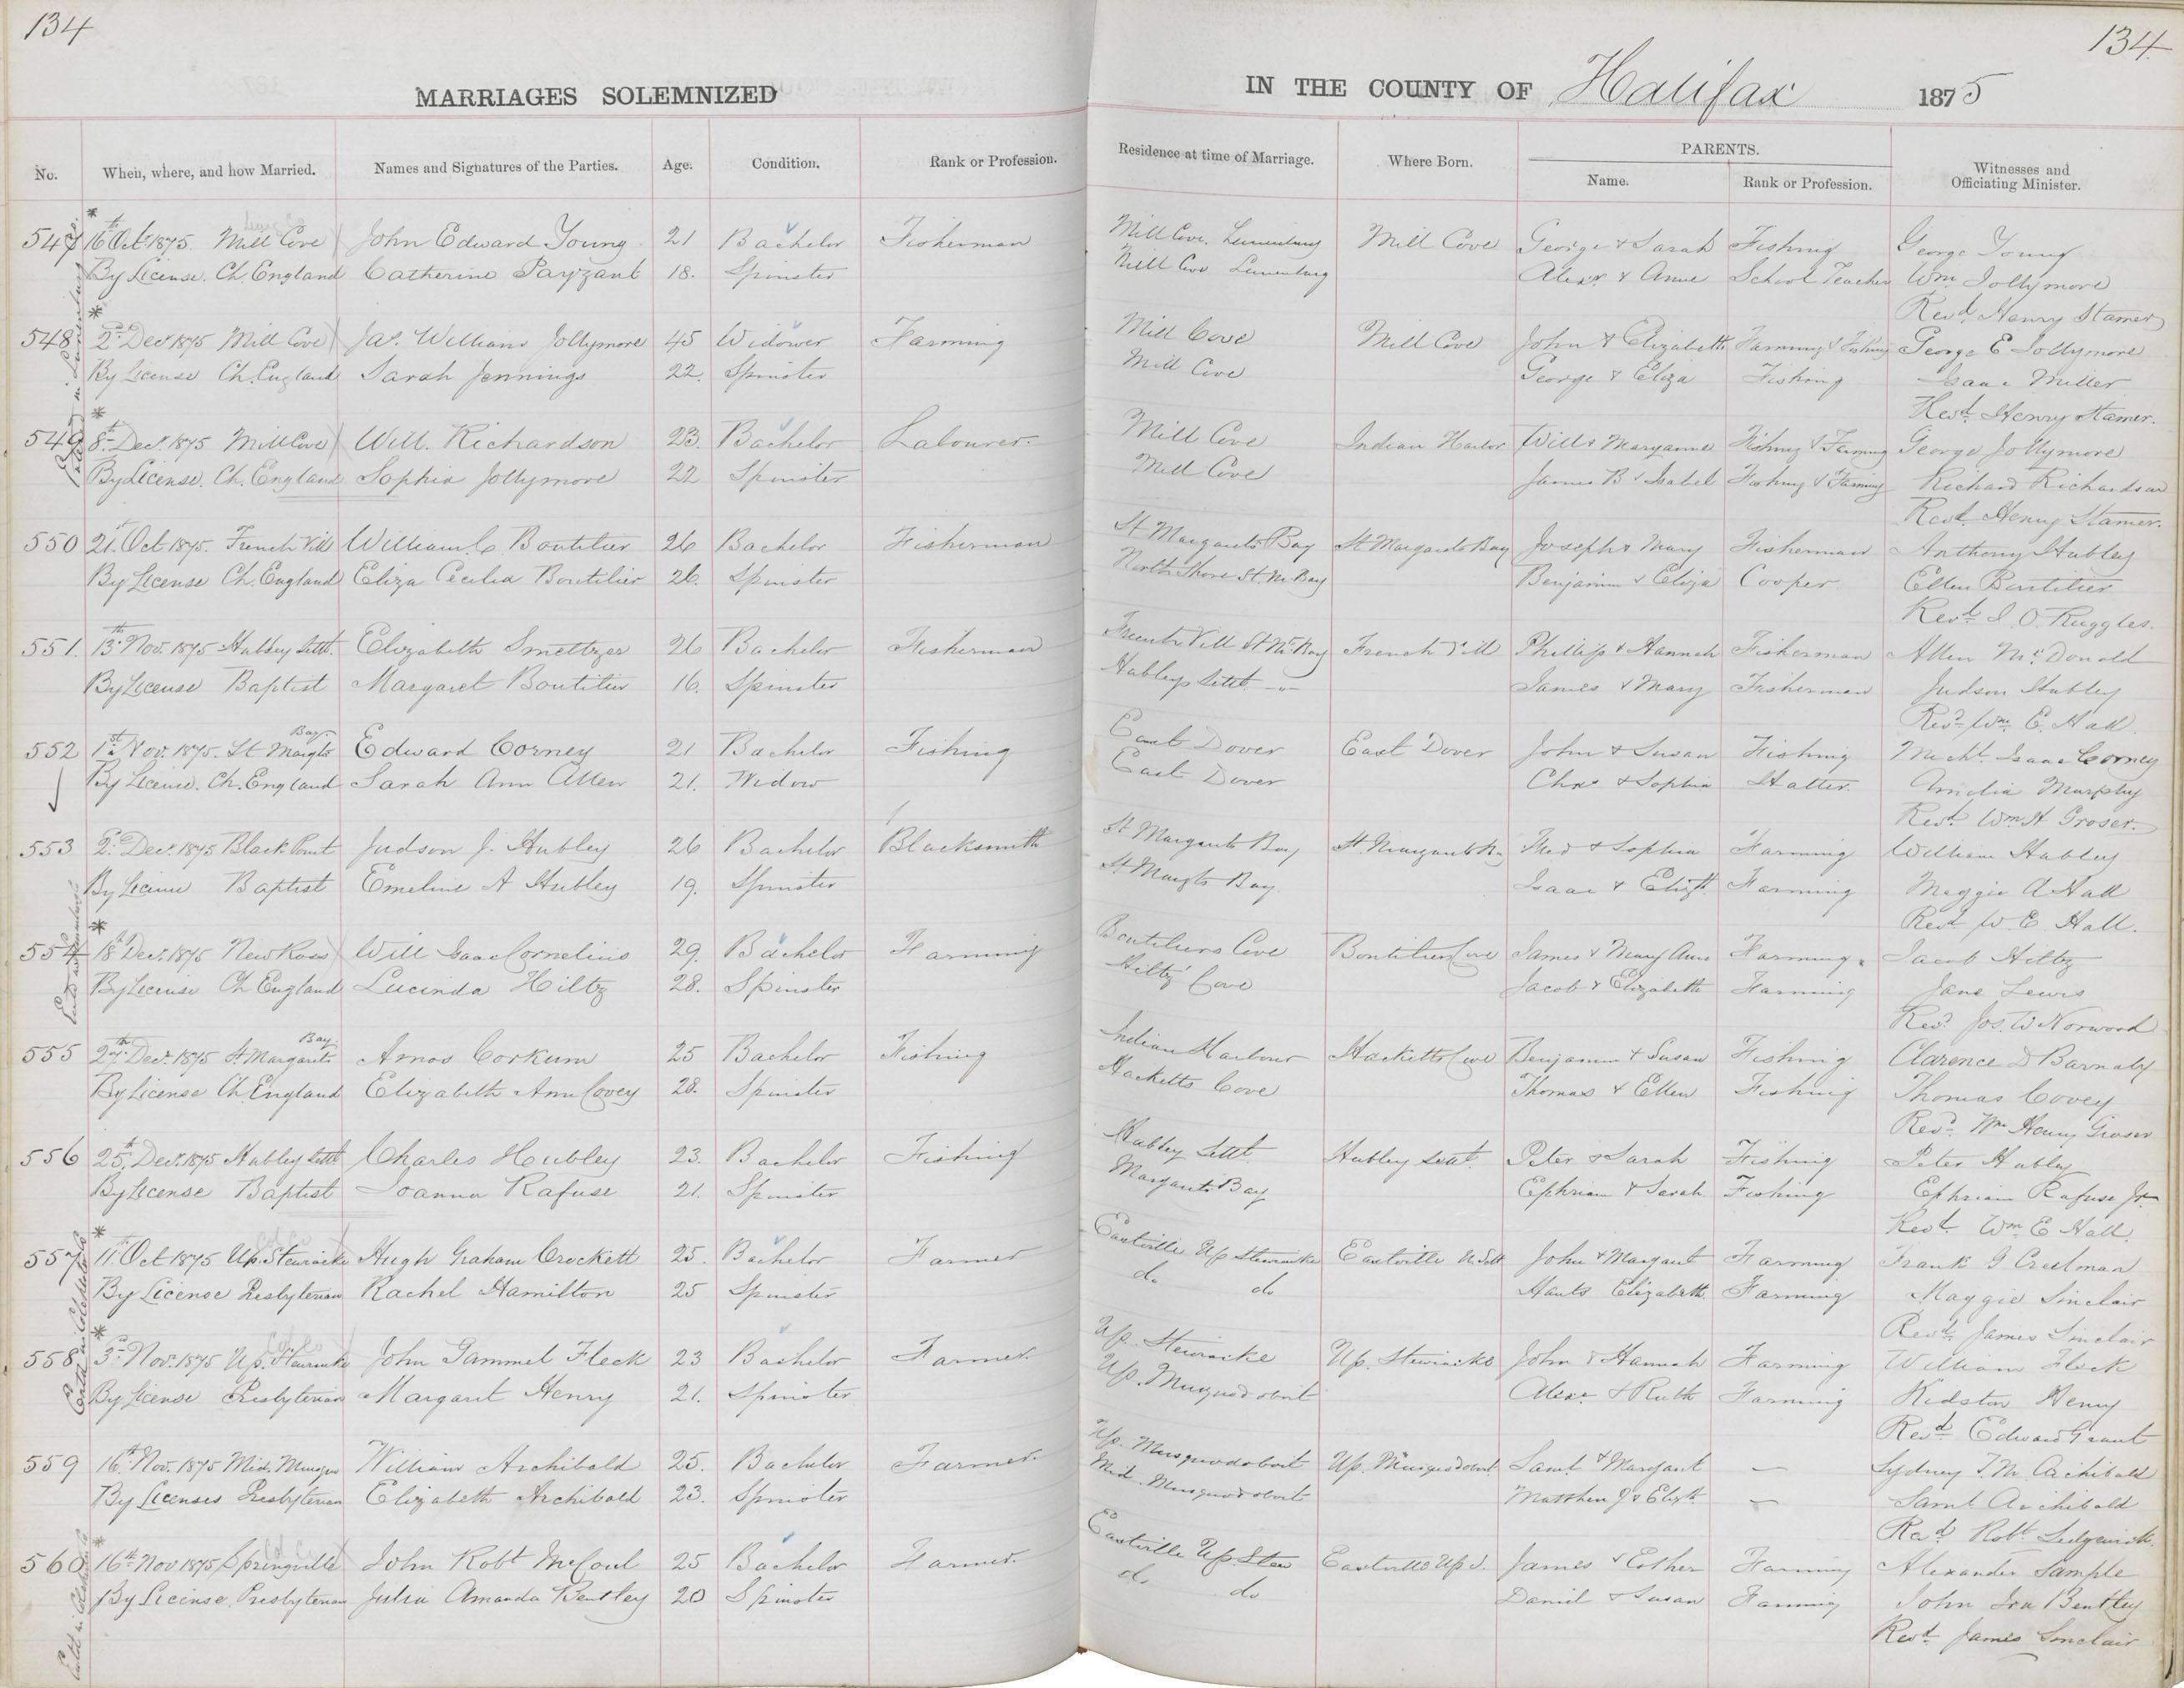 134
134
MARRIAGES SOLEMNIZED
IN THE COUNTY OF Halifax 1875
No. When, where, and how Married. Names and Signatures of the Parties. Age. Condition. Rank or Profession. Residence at time of Marriage. Where Born. PARENTS. Name. Rank or Profession. Witnesses and Officiating Minister.
547 16th Oct. 1875. Mill Cove John Edward Young 21 Bachelor Fisherman Mill Cove, Lunenburg Mill Cove George & Sarah Fishing George Young
By License. Ch. England Catherine Payzant 18. Spinster Mill Cove Lunenburg Alexr. & Anne School Teacher Wm Jollymore
Revd. Henry Stamer
548 2d Decr 1875 Mill Cove Jas. William Jollymore 45 Widower Farming Mill Cove Mill Cove John & Elizabeth Farming & Fishing George E Jollymore
By License Ch. England Sarah Jennings 22. Spinster Mill Cove George & Eliza Fishing Isaac Miller
Revd. Henry Stamer.
549 8th Decr. 1875 Mill Cove Will. Richardson 23. Bachelor Labourer. Mill Cove Indian Harbor Will & Maryanne Fishing & Farming George Jollymore
By License. Ch. England Sophia Jollymore 22 Spinster Mill Cove James B & Isabel Fishing & Farming Richard Richardson
Revd. Henry Stamer.
550 21st Oct 1875. French Vill William C Boutilier 26 Bachelor Fisherman St Margarets Bay St Margarets Bay Joseph & Mary Fisherman Anthony Hubley
By License Ch. England Eliza Cecilia Boutilier 26. Spinster North Shore St. M. Bay Benjamin & Eliza Cooper Ellen Boutilier
Revd. J. O. Ruggles.
551. 13th Nov. 1875 Hubley Settt. Elizabeth Smeltzer 26 Bachelor Fisherman French Vill St Mt Bay French Vill Phillip & Hannah Fisherman Allen McDonald
By License Baptist Margaret Boutilier 16. Spinster Hubleys Settt -"- James & Mary Fisherman Judson Hubley
Revd. Wm E. Hall.
552 1st Nov. 1875. St Margts Bay Edward Corney 21 Bachelor Fishing East Dover East Dover John & Susan Fishing Isaac Corney
By License. Ch. England Sarah Ann Allen 21. Widow East Dover Chas & Sophia Hatter. Amelia Murphy
Revd. Wm H Groser.
553 2d Decr 1875 Black Point Judson J. Hubley 26 Bachelor Blacksmith St Margarets Bay St. Margarets B Fred & Sophia Farming William Hubley
By License Baptist Emeline A Hubley 19. Spinster St Margts Bay. Isaac & Elizth. Farming Maggie A Hall
Revd. W. E. Hall.
554 18th Decr. 1875 New Ross Will Isaac Cornelius 29. Bachelor Farming Boutiliers Cove Boutiliers Cove James & Mary Ann Farming Jacob Hiltz
By License Ch England Lucinda Hiltz 28. Spinster Hiltz' Cove Jacob & Elizabeth Farming Jane Lewis
Revd. Jos. W Norwood
555 27th Decr. 1875 St. Margarets Bay Amos Corkum 25 Bachelor Fishing Indian Harbour Hacketts Cove Benjamin & Susan Fishing Clarence D Barnaby
By License Ch. England Elizabeth Ann Covey 28. Spinster Hacketts Cove Thomas & Ellen Fishing Thomas Covey
Revd. Wm Henry Groser
556 25th Decr. 1875 Hubley Settt Charles Hubley 23. Bachelor Fishing Hubley Settt. Hubley Settt. Peter & Sarah Fishing Peter Hubley
By License Baptist Joanna Rafuse 21. Spinster Margarets Bay Ephriam & Sarah Fishing Ephriam Rafuse Jr
Revd. Wm E Hall.
557 11th Oct 1875 Up. Stewiacke Hugh Graham Crockett 25. Bachelor Farmer Eastville Up Stewiacke Eastville John & Margaret Farming Frank G Creelman
By License Presbyterian Rachel Hamilton 25 Spinster do do Hants Elizabeth Farming Maggie Sinclair
Revd. James Sinclair
558 3d Nov. 1875 Up. Stewiacke John Gammel Fleck 23 Bachelor Farmer. Up. Stewiacke Up. Stewiacke John & Hannah Farming William Fleck
By License Presbyterian Margaret Henry 21. Spinster Up. Musquodoboit Alexr & Ruth Farming Kidston Henry
Revd. Edward Grant
559 16th Nov. 1875 Mid. Musquo William Archibald 25. Bachelor Farmer. Up. Musquodoboit Up. Musquodoboit Saml. & Margaret — Sydney T. M. Archibald
By License Presbyterian Elizabeth Archibald 23. Spinster Mid. Musquodoboit Matthew J & Elizth. — Saml. Archibald
Revd. Robt. Sedgewick.
560 16th Nov 1875 Springville John Robt McCoul 25 Bachelor Farmer. Eastville Up Stew Eastville Up S. James & Esther Farming Alexander Sample
By License. Presbyterian Julia Amanda Bentley 20 Spinster do do Daniel & Susan Farming John Ira Bentley
Revd. James Sinclair